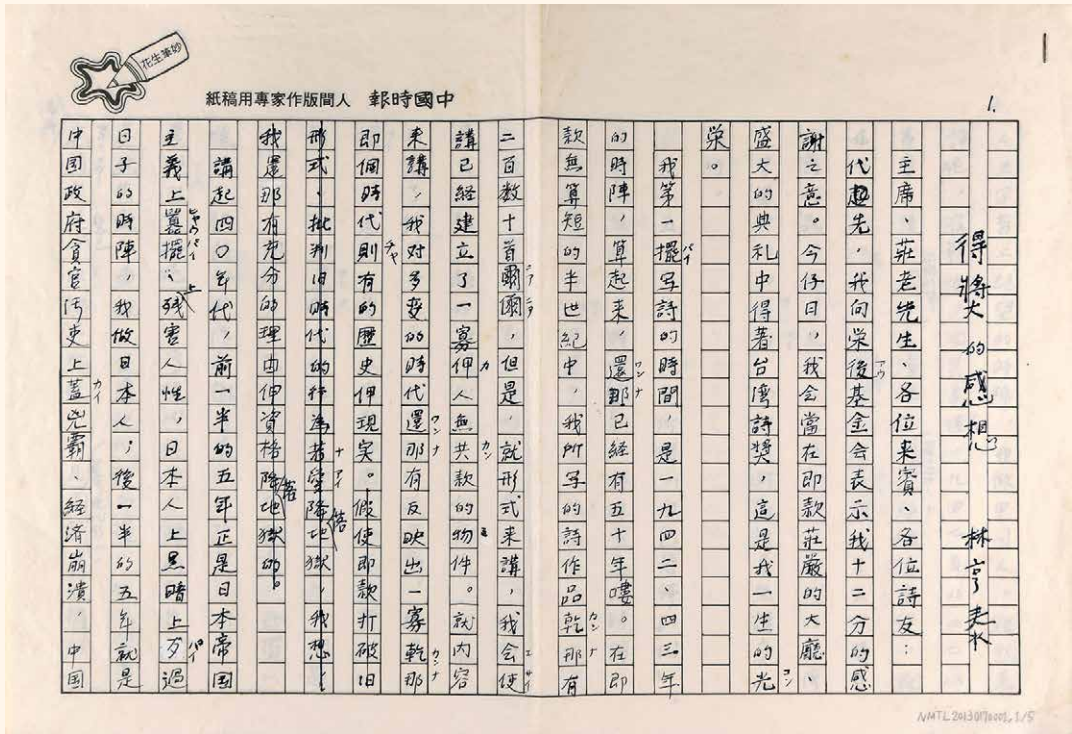 花生筆妙
中國時報 人間版作家專用稿紙
1.
得獎大的感想
林亨泰
主席、莊老先生、各位来賓、各位詩友：
代趋先，我向栄後基金会表示我十二分的感
謝之意。今仔日，我会當在即款莊嚴的大廳、
盛大的典礼中得著台湾詩獎，這是我一生的光
栄。
我第一擺写詩的時間，是一九四二、四三年
的時陣，算起来，還那已經有五十年嘍。在即
款無算短的半世紀中，我所写的詩作品乾那有
二百数十首爾爾，但是，就形式来講，我会使
講已經建立了一寡伸人無共款的物件。就内容
来講，我对多变的時代還那有反映出一寡乾那
即個時代則有的歴史伸現実。假使即款打破旧
形式、批判旧時代的行為若卛落地獄，我想
我還那有充分的理由伸資格落地獄的。
講起四〇年代，前一半的五年正是日本帝国
主義上囂擺、上残害人性，日本人上黑暗上歹過
日子的時陣，我做日本人；後一半的五年就是
中国政府貪官汚吏上蓋兇霸、経済崩潰，中国
NMTL20130170001,1/5